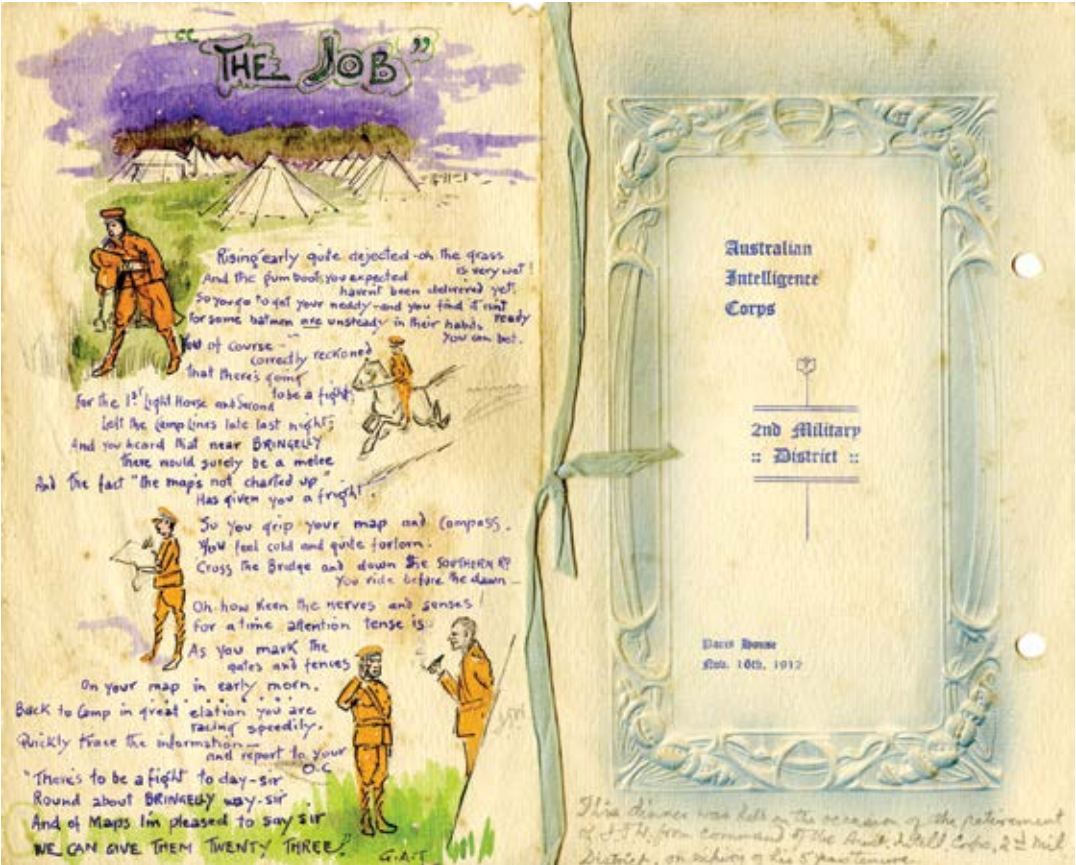 "THE JOB"
Rising early quite dejected - oh the grass
is very wet!
And the gum boots you expected
haven't been delivered yet.
So you go to get your neddy - and you find it isnt
ready
For some batmen are unsteady in their habits
You can bet.
You of course -
correctly reckoned
that there's going
to be a fight,
For the 1st Light Horse and Second
Left the camp lines late last night;
And you heard that near BRINGELLY
there would surely be a melee
And the fact "the map's not charted up"
Has given you a fright.
So you grip your map and compass.
You feel cold and quite forlorn.
Cross the Bridge and down the SOUTHERN RD
You ride before the dawn -
Oh how keen the nerves and senses
for a time attention tense is
As you mark the
gates and fences
On your map in early morn.
Back to Camp in great elation you are
racing speedily.
Quickly trace the information -
and report to your
O.C
"There's to be a fight to day-sir
Round about BRINGELLY way-sir
And of Maps I'm pleased to say sir
WE CAN GIVE THEM TWENTY THREE!
G.A.T
Australian
Intelligence
Corps
2nd Military
:: District ::
Paris House
Nov. 16th, 1912
This dinner was held on the occasion of the retirement
of J.T.W. from command of the Aust. Intell. Corps, 2nd Mil
District, on expiry of his 5 years tenure